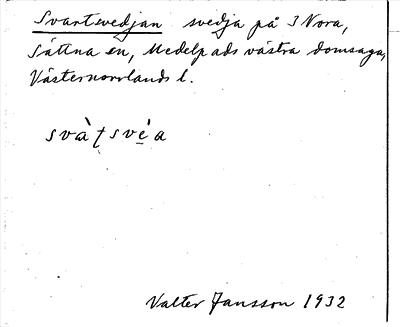 Svartsvedjan svedja på 3 Nora,
Sättna sn, Medelpads västra domsaga,
Västernorrlands l.
svàʈsvé̠a
Valter Jansson 1932